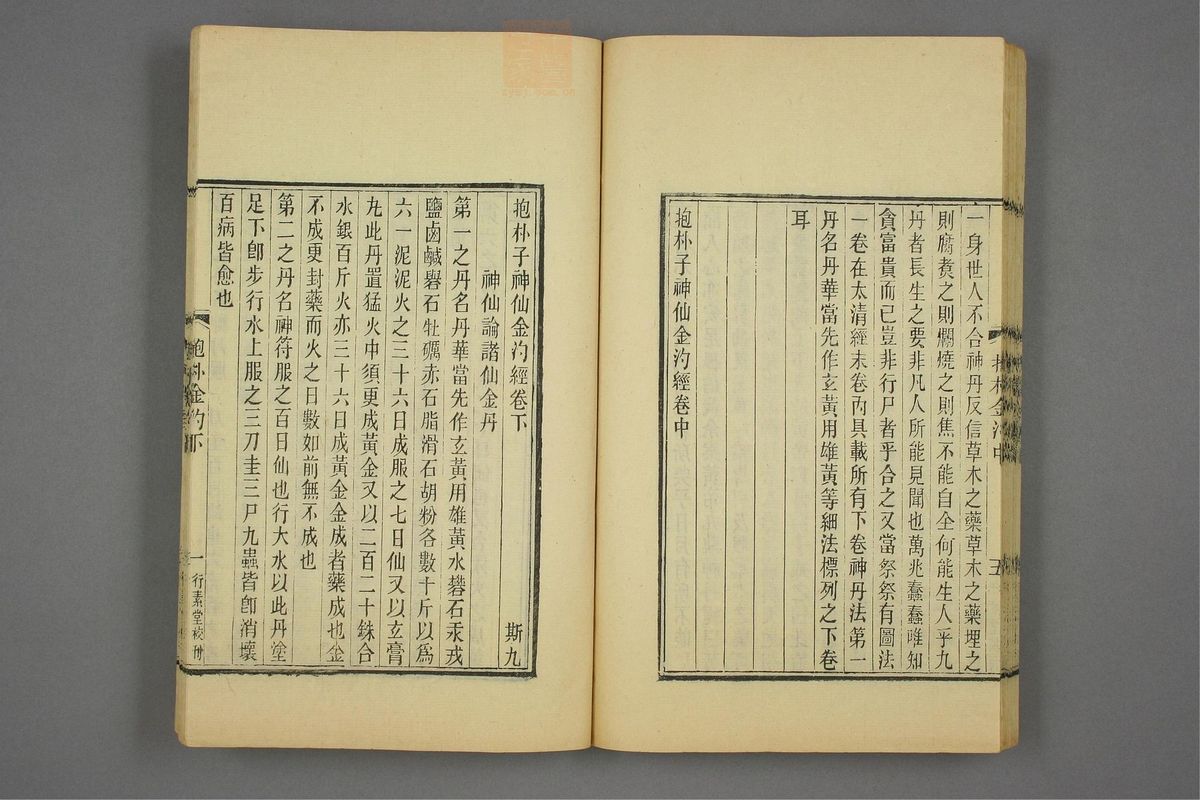 一身世人不合神丹反信草木之藥草木之藥埋之
則腐煑之則爛燒之則焦不能自全何能生人乎九
丹者長生之要非凡人所能見聞也萬兆蠢蠢唯知
貪富貴而已豈非行尸者乎合之又當祭祭有圖法
一卷在太清經末卷內具載所有下卷神丹法第一
丹名丹華當先作玄黃用雄黃等細法標列之下卷
耳
抱朴子神仙金汋經卷中
五
抱朴子神仙金汋經卷下
斯九
神仙論諸仙金丹
第一之丹名丹華當先作玄黃用雄黃水礬石汞戎
鹽鹵鹹礜石牡礪赤石脂滑石胡粉各數十斤以爲
六一泥泥火之三十六日成服之七日仙又以玄膏
丸此丹置猛火中須更成黃金又以二百二十銖合
水銀百斤火亦三十六日成黃金金成者藥成也金
不成更封藥而火之日數如前無不成也
第二之丹名神符服之百日仙也行大水以此丹塗
足下卽步行水上服之三刀圭三尸九蟲皆卽消壞
百病皆愈也
抱朴金汋下
一
行素堂校刊